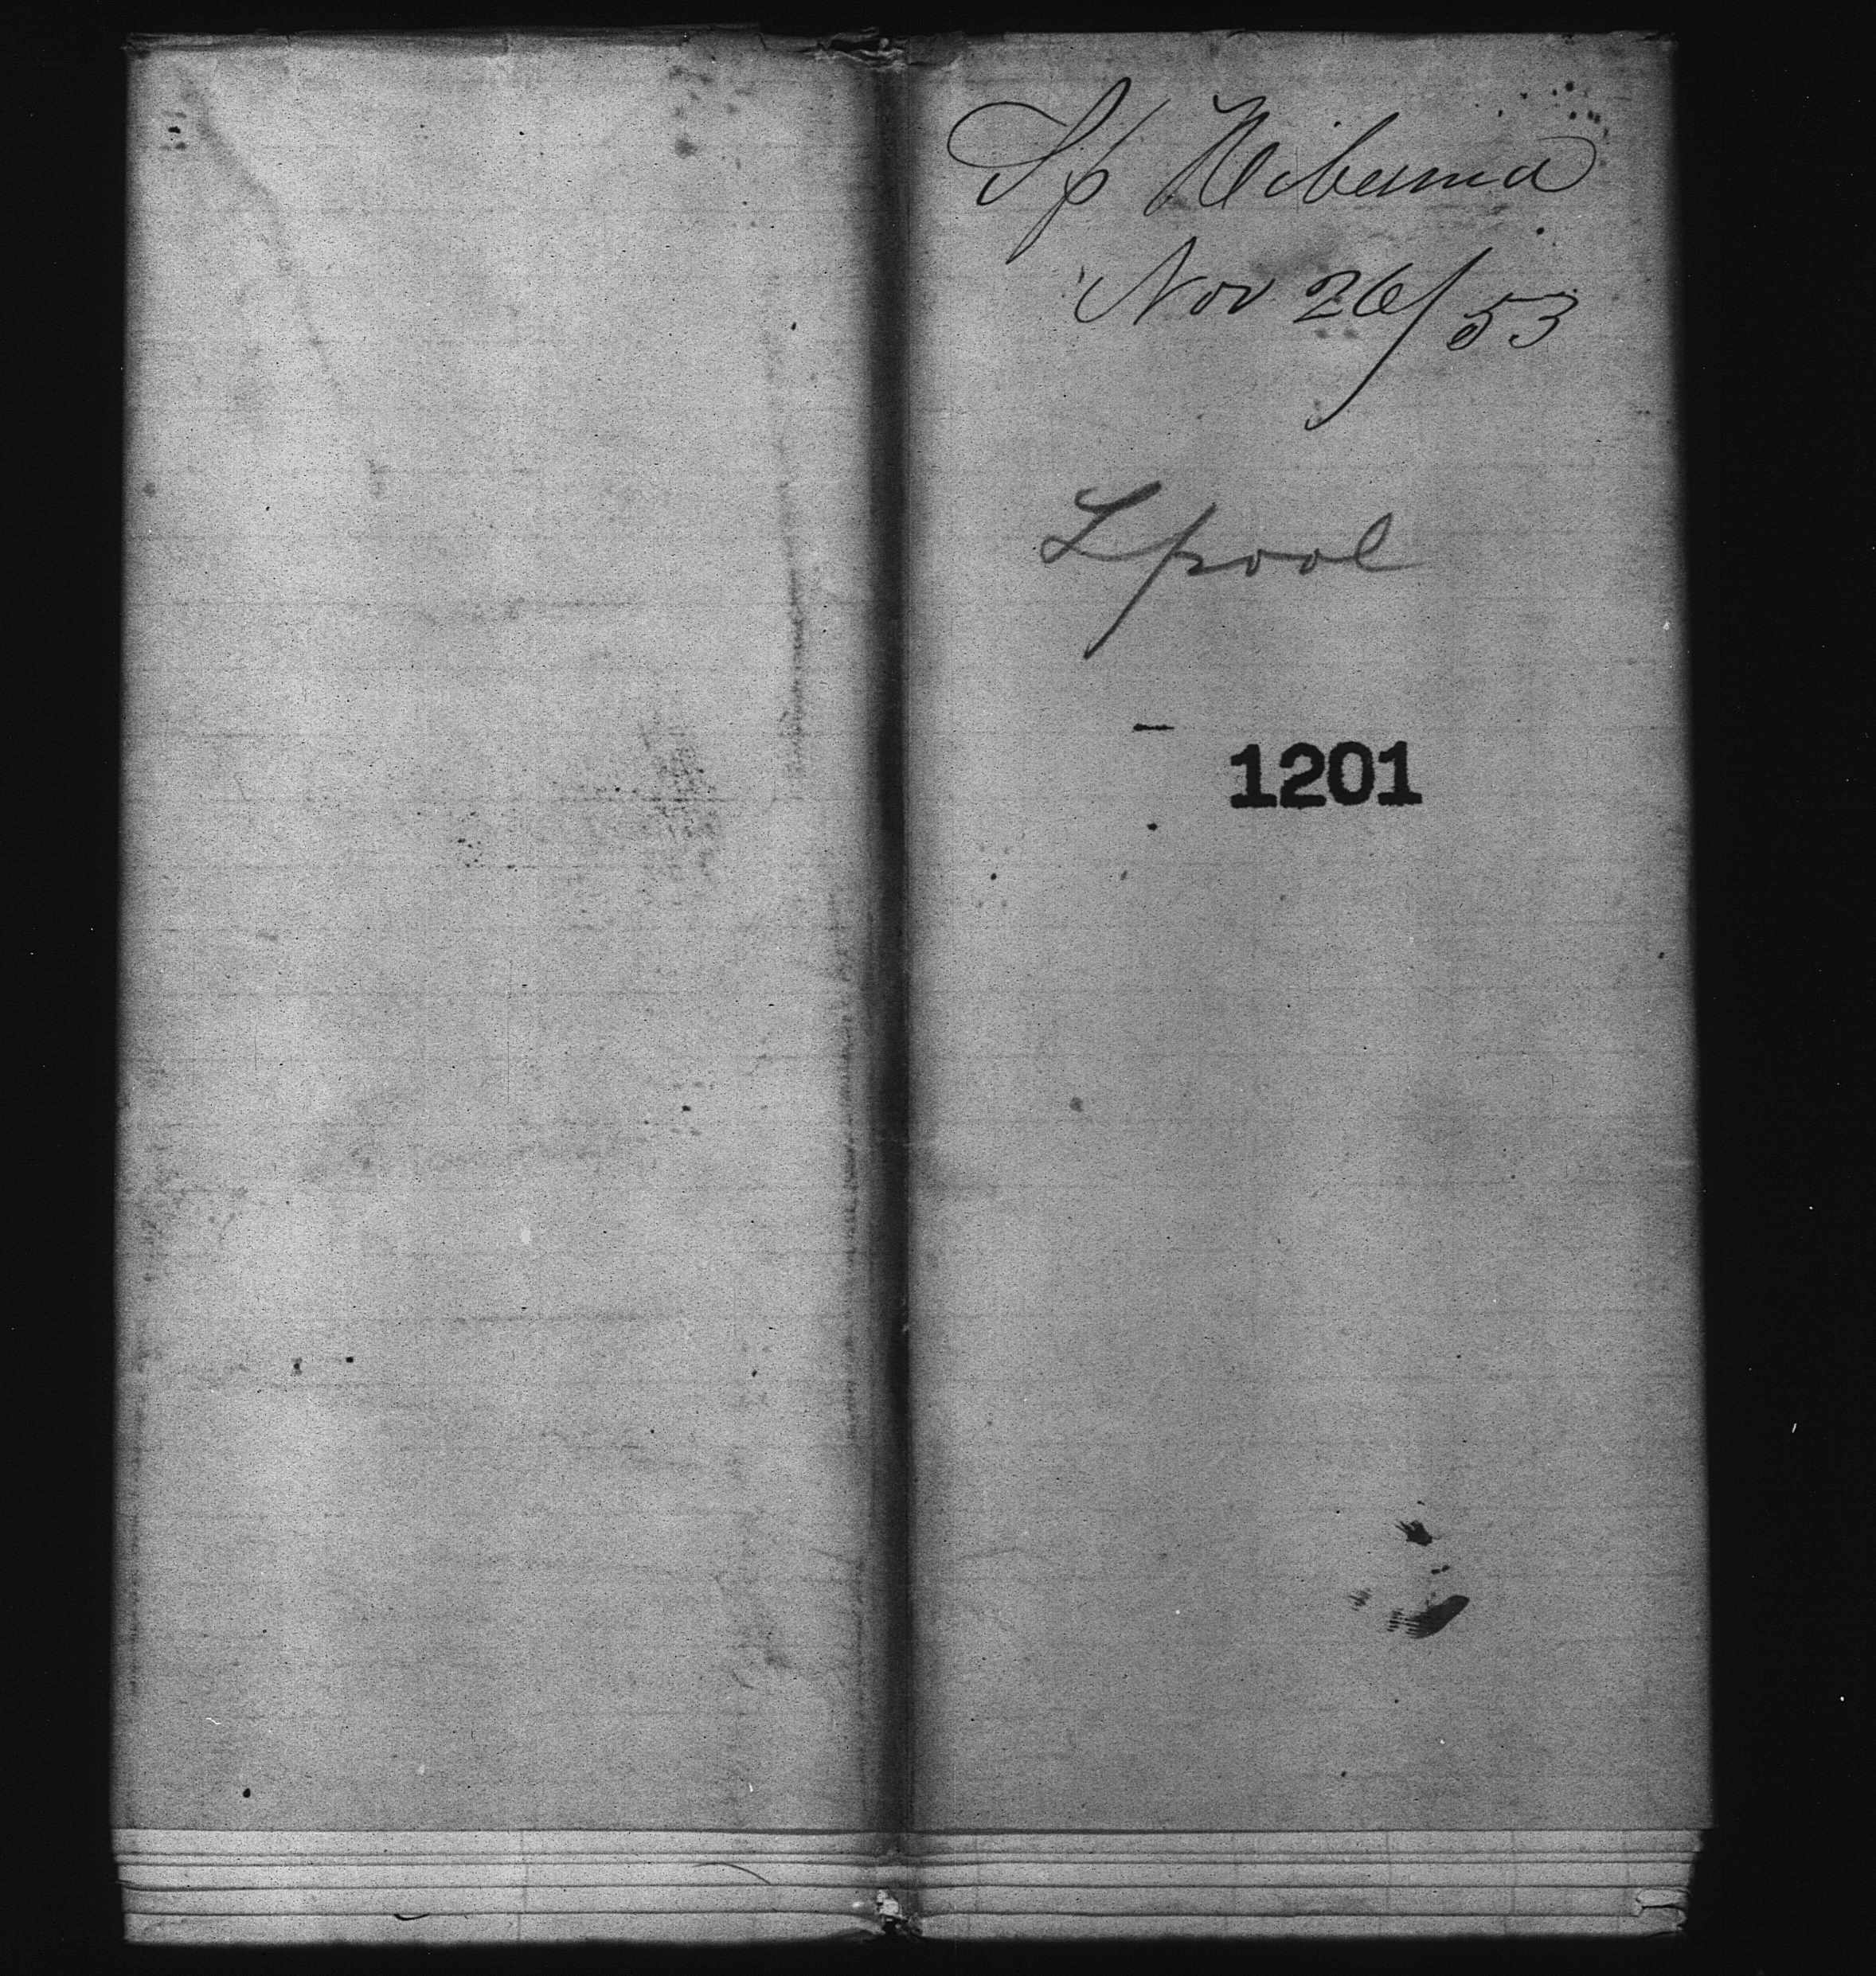 Sp Hibernia
Nov 26/53
Lpool
1201